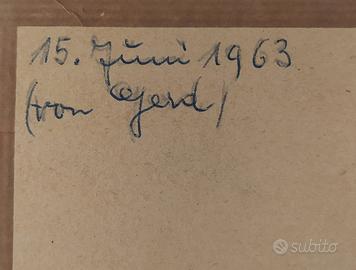 15. Juni 1963
(von Gerd)
subito